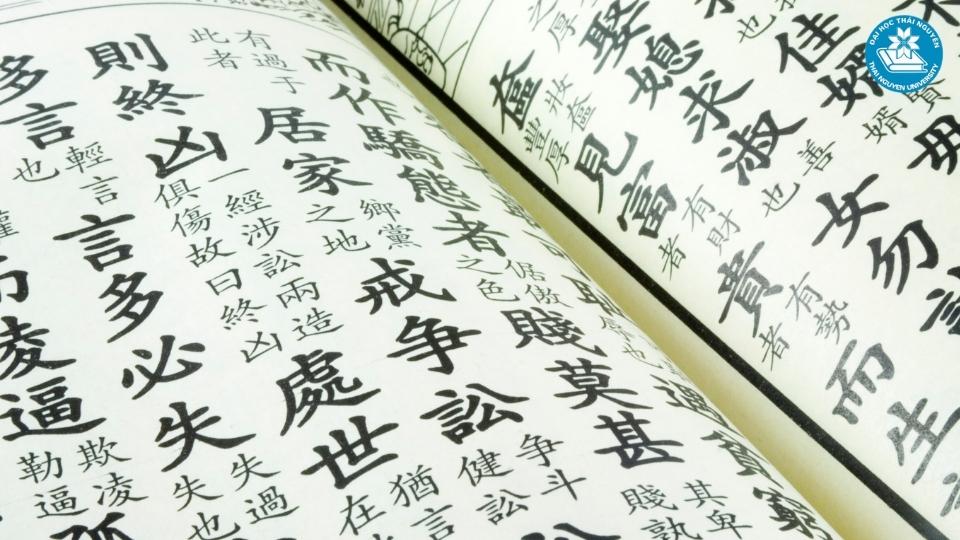 ĐẠI HỌC THÁI NGUYÊN
THAI NGUYEN UNIVERSITY
佳婿賢婿毋
也
娶媳求淑善也女勿
之厚
奩妝奩豐厚見富有財者貴有勢者而生
遇貧窮
而作驕態者倨傲之色賤莫甚其卑賤孰
有過于此者居家鄉黨之地戒争訟争斗健訟
則終凶一經涉訟兩造俱傷故曰終凶處世猶言在
多言輕言也言多必失失過失也
而凌逼欺凌勒逼孤